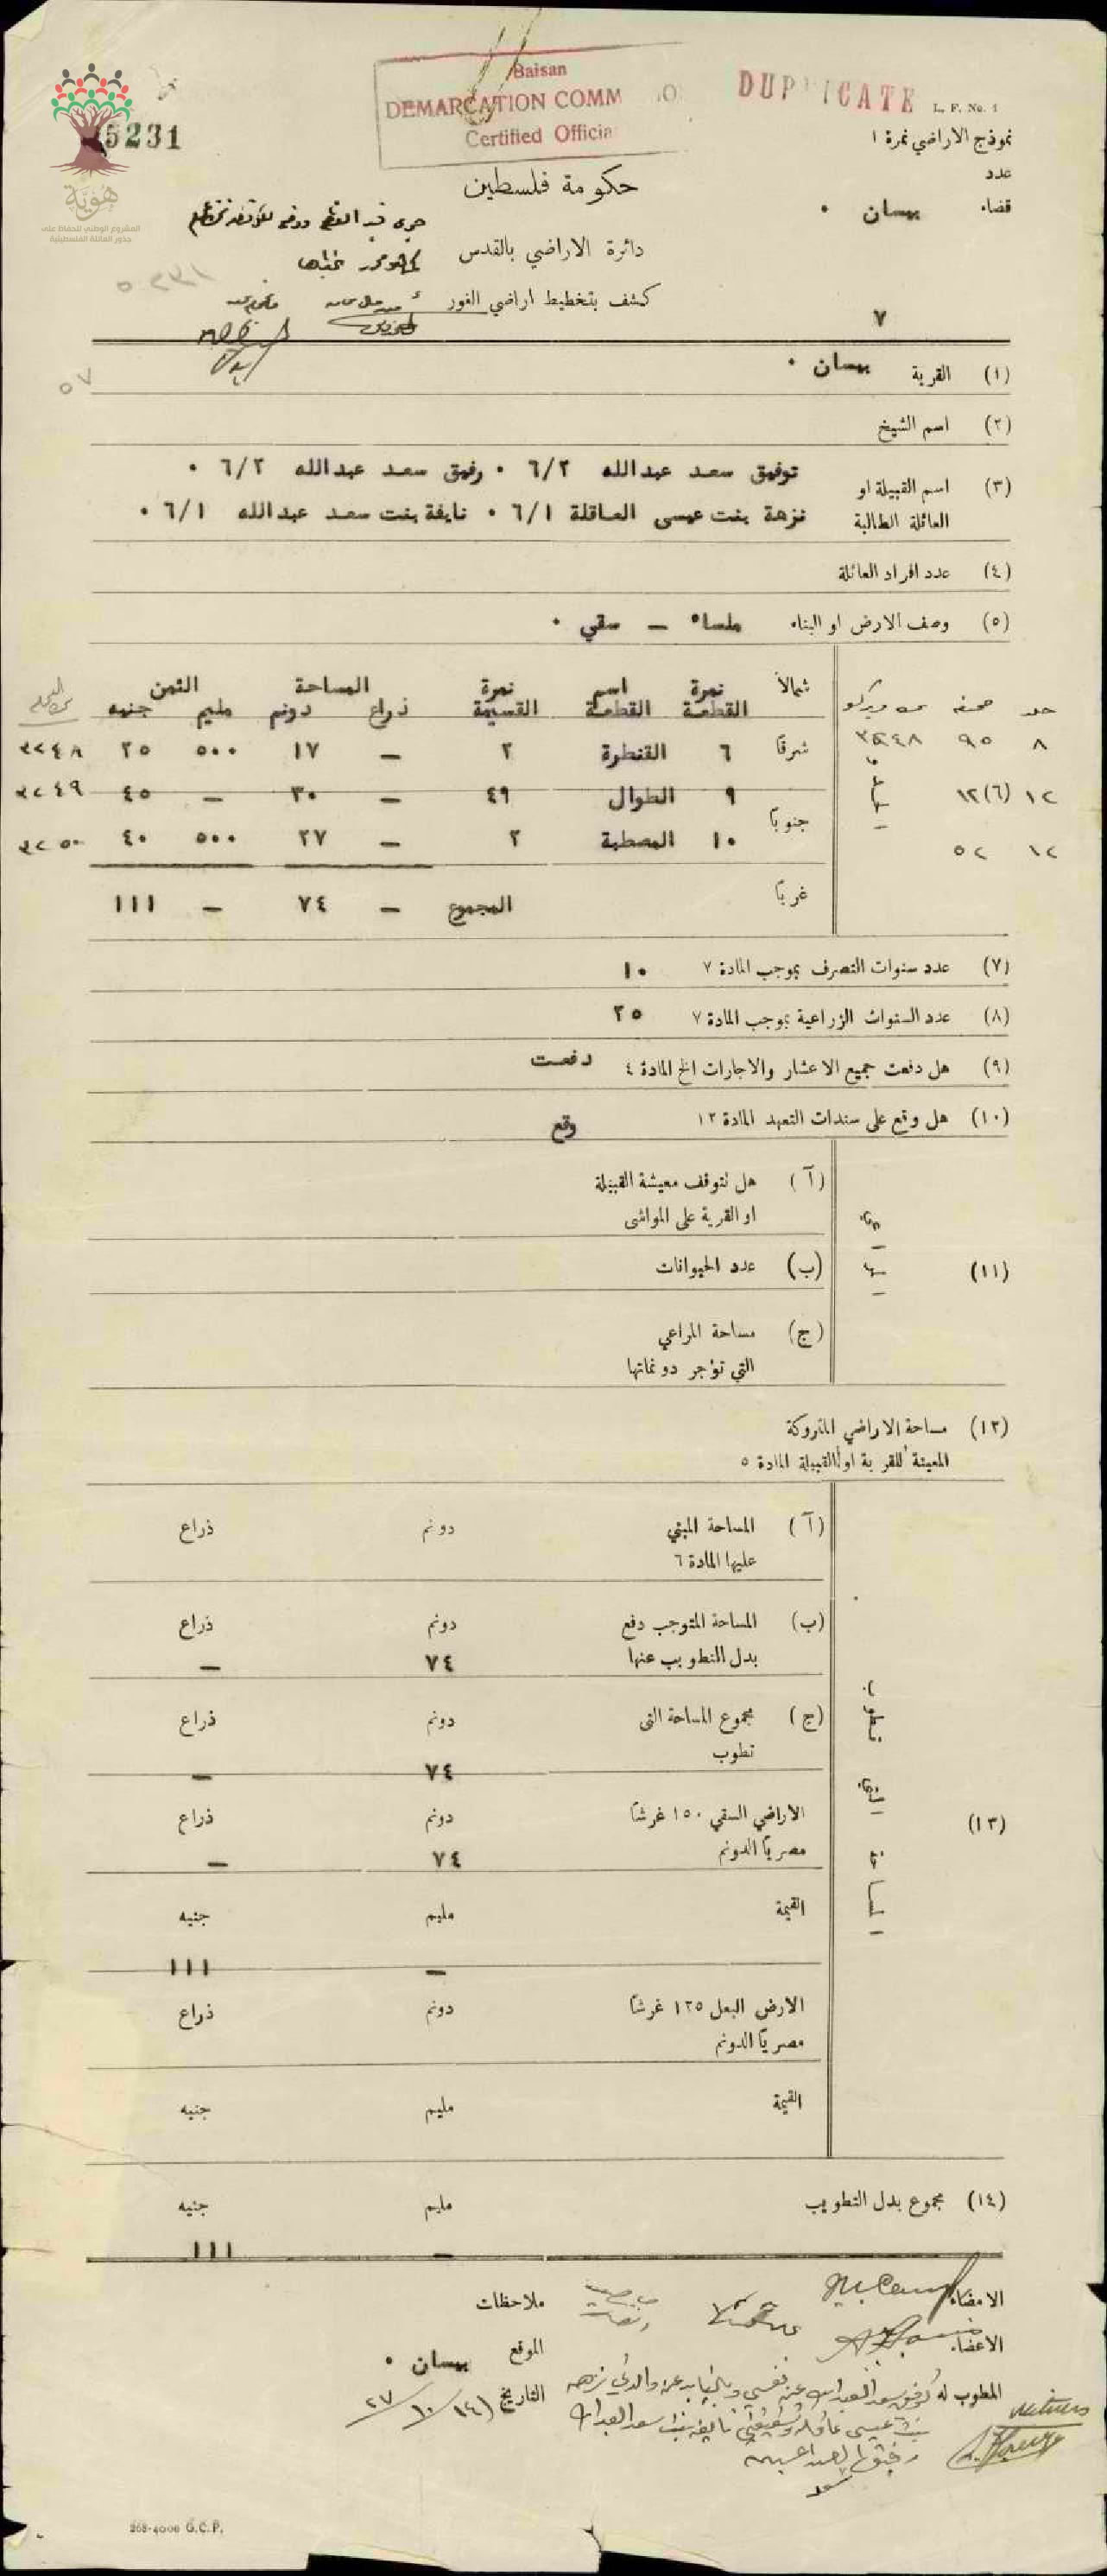 Baisan
DEMARCATION COMM
Certified Officia
DUPLICATE
L. F. No. 1
5231
نموذج الاراضي نمرة ١
عدد
قضاء بيسان ٠
هُوِيَّة
المشروع الوطني للحفاظ على
جذور العائلة الفلسطينية
حكومة فلسطين
دائرة الاراضي بالقدس
كشف بتخطيط اراضي الغور
٧
(١) القرية بيسان ٠
(٢) اسم الشيخ
(٣) اسم القبيلة او العائلة الطالبة
توفيق سعد عبدالله ٦/٢ ٠ رفيق سعد عبدالله ٦/٢ ٠
نزهة بنت عيسى العاقلة ٦/١ ٠ نايفة بنت سعد عبدالله ٦/١ ٠
(٤) عدد افراد العائلة
(٥) وصف الارض او البناء ملساء — سقي ٠
شمالاً نمرة القطعة اسم القطعة نمرة القسيمة المساحة ذراع دونم الثمن مليم جنيه
شرقاً ٦ القنطرة ٢ — ١٧ ٥٠٠ ٢٥ ٣٢٤٨
٩ الطوال ٤٩ — ٣٠ — ٤٥ ٣٢٤٩
جنوباً ١٠ المصطبة ٢ — ٢٧ ٥٠٠ ٤٠ ٣٢٥٠
غرباً المجموع — ٧٤ — ١١١
صحفه
٨ ٩٥
١٢ (٦)١٢
١٢ ٥٢
(٧) عدد سنوات التصرف بموجب المادة ٧ ١٠
(٨) عدد السنوات الزراعية بموجب المادة ٧ ٢٥
(٩) هل دفعت جميع الاعشار والاجارات الخ المادة ٤ دفعت
(١٠) هل وقع على سندات التعهد المادة ١٢ وقع
(١١)
(آ) هل تتوقف معيشة القبيلة
او القرية على المواشى
(ب) عدد الحيوانات
(ج) مساحة المراعي
التي تؤجر دونماتها
(١٢) مساحة الاراضي المتروكة
المعينة للقرية او القبيلة المادة ٥
(١٣)
(آ) المساحة المبني دونم ذراع
عليها المادة ٦
(ب) المساحة المتوجب دفع دونم ذراع
بدل التطويب عنها ٧٤ —
(ج) مجموع المساحة التى دونم ذراع
تطوب ٧٤ —
الاراضي السقي ١٥٠ غرشاً دونم ذراع
مصرياً الدونم ٧٤ —
القيمة مليم جنيه
— ١١١
الارض البعل ١٢٥ غرشاً دونم ذراع
مصرياً الدونم
القيمة مليم جنيه
(١٤) مجموع بدل التطويب مليم جنيه
— ١١١
الامضاء
ملاحظات
الاعضاء
الموقع بيسان ٠
المطوب له
التاريخ ٢٧/١٠/١٤
268-4000 G.C.P.